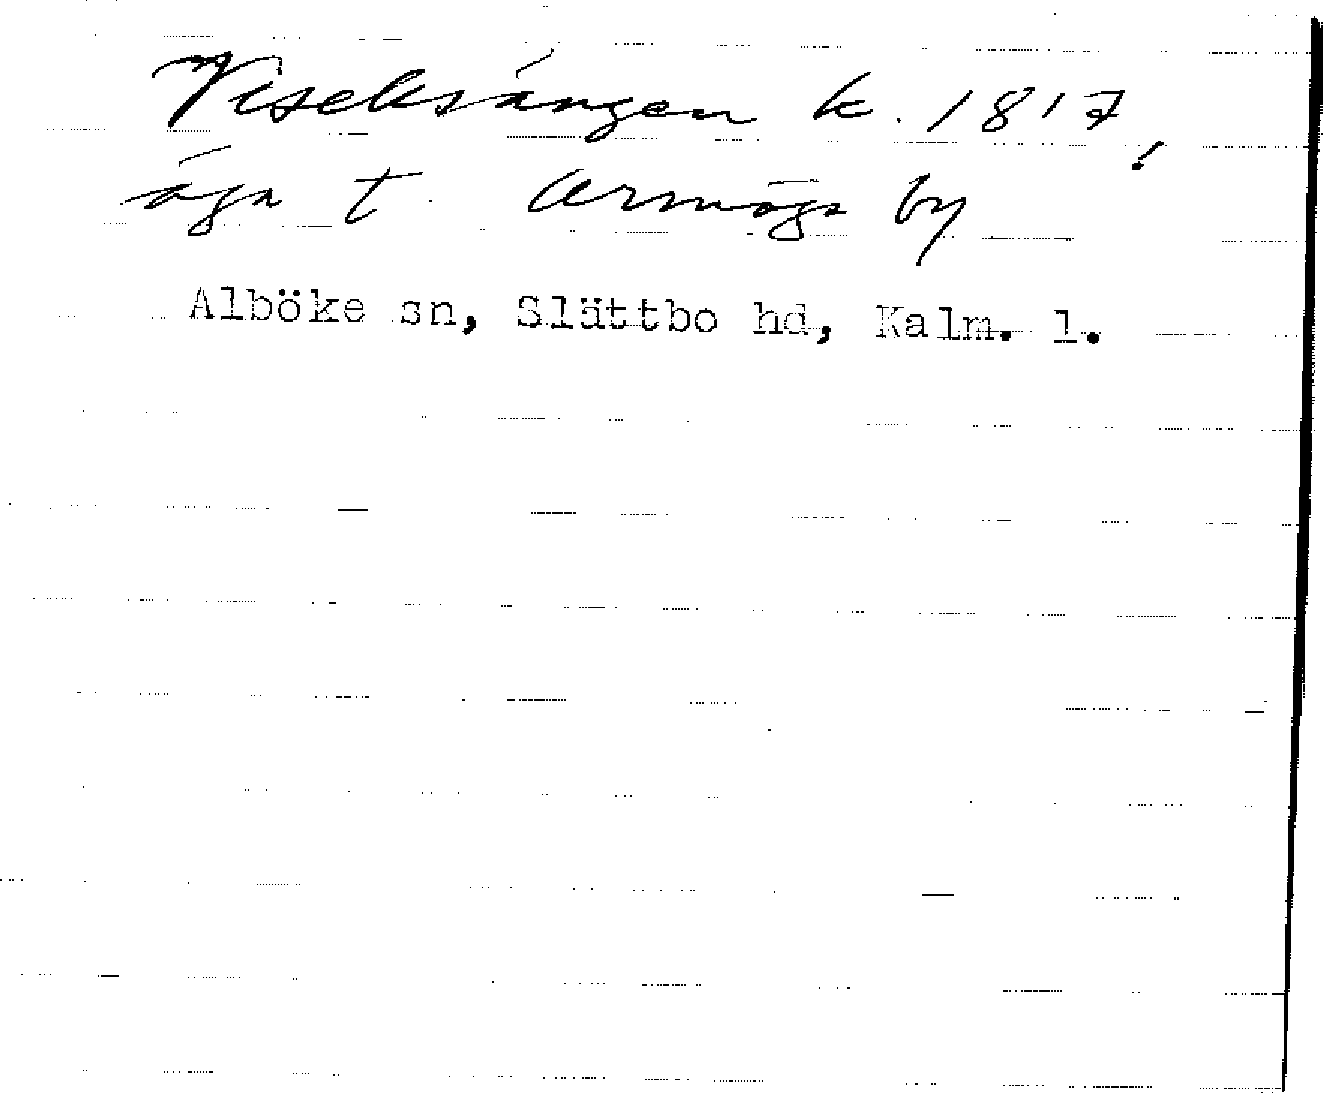 Viseksängen k. 1817,
äga t. Arnmöga by
Alböke sn, Slättbo hd, Kalm. l.